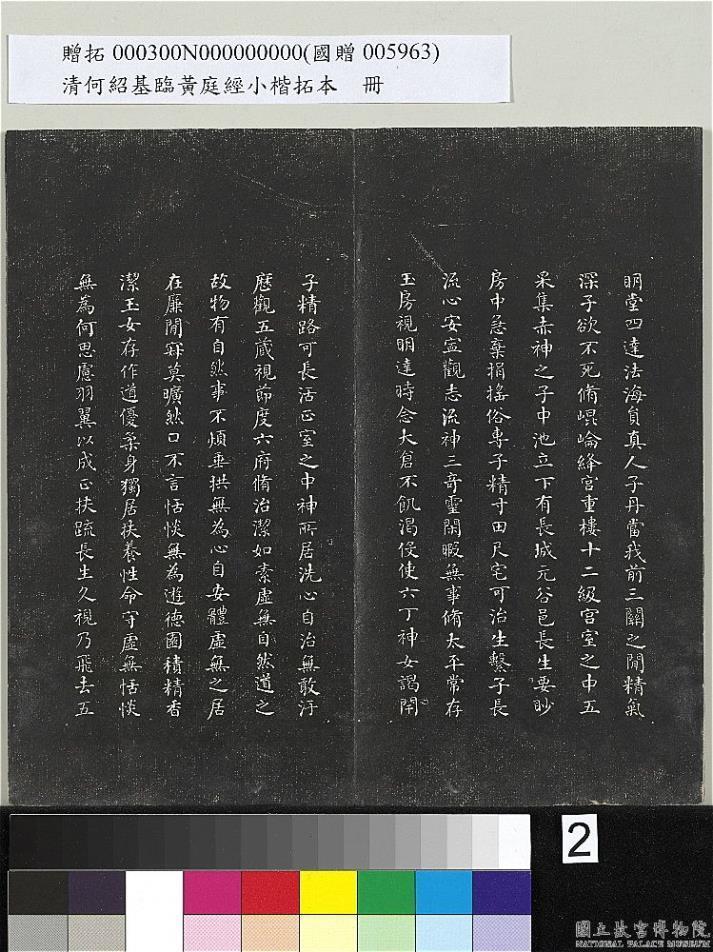 贈拓 000300N000000000(國贈 005963)
清何紹基臨黃庭經小楷拓本　冊
明堂四達法海負真人子丹當我前三關之間精氣
深子欲不死脩崐崙絳宮重樓十二級宮室之中五
采集赤神之子中池立下有長城元谷邑長生要眇
房中急棄捐搖俗專子精寸田尺宅可治生繫子長
流心安寍觀志流神三奇靈閑暇無事脩太平常存
玉房視明達時念大倉不飢渴伇使六丁神女謁閉
子精路可長活正室之中神所居洗心自治無敢汙
歷觀五藏視節度六府脩治潔如素虛無自然道之
故物有自然事不煩垂拱無為心自安體虛無之居
在廉閒寂莫曠然口不言恬惔無為遊德園積精香
潔玉女存作道優柔身獨居扶養性命守虛無恬惔
無為何思慮羽翼以成正扶疏長生久視乃飛去五
2
國立故宮博物院
NATIONAL PALACE MUSEUM